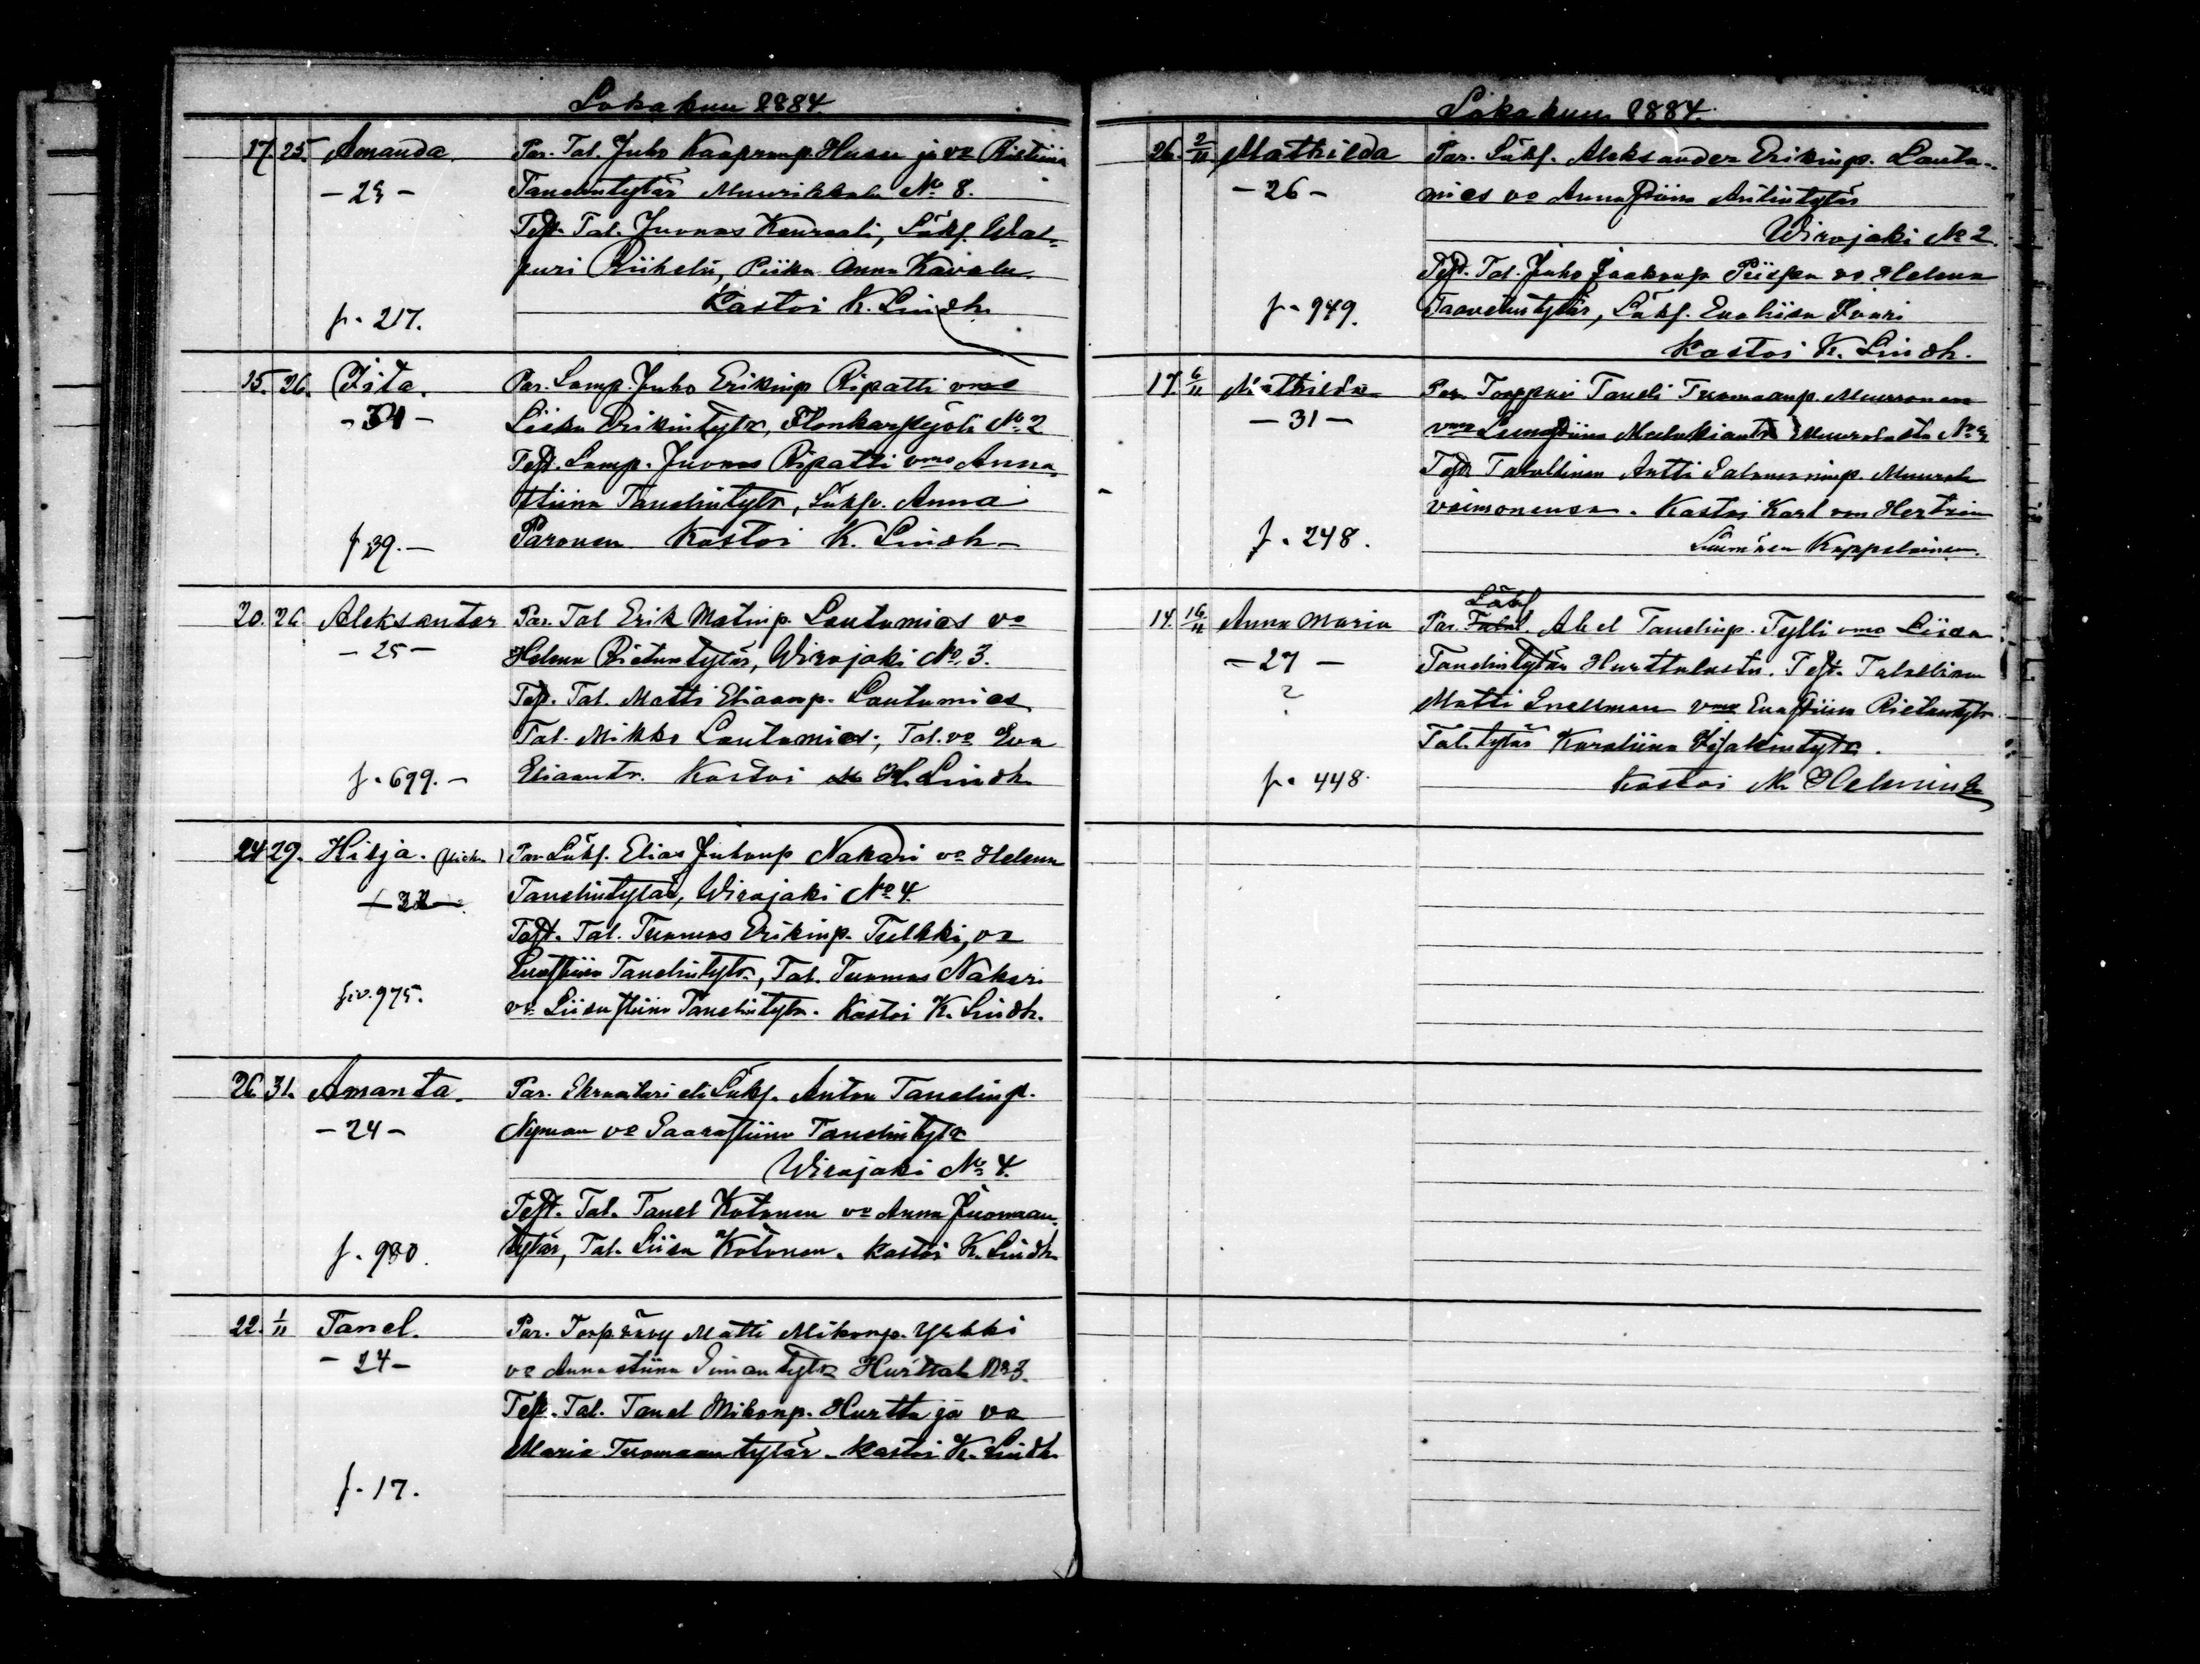 Lokakuu 1884.
17. 25. Amanda. Par. Tal. Juho Kaaprenp. Husu ja vo Ristiina
- 25 - Tanelintytär Muurikkala No 8.
Test. Tal. Juonas Kauraali, Läksf. Wal-
puri Riihelä, Piika Anna Kavala
f. 217. Kastoi K. Lindh.
15. 26. Iita. Par. Lamp. Juho Erikinp Ripatti vmo
- 31 - Liisa Erikintytr, Honkarpyöli No 2
Test. Lamp. Juonas Ripatti vmo Anna
Stiina Tanelintytr, Läksf. Anna
f. 39. - Paronen Kastoi K. Lindh -
20. 26. Aleksanter Par. Tal Erik Matinp. Lautamies vo
- 25 - Helena Rietuntytär, Wirojoki No. 3.
Test. Tal. Matti Eliaanp. Lautamies
Tal. Mikko Lautamies, Tal. vo Eva
f. 699. - Eliaantr. Kastoi K. Lindh.
24 29. Hilja. Par Läksf. Elias Juhonp Nakari vo Helena
- 32 - Tanelintytär, Wirojoki No 4.
Test. Tal. Tuomas Erikinp. Tulkki, vo
Evastiina Tanelintytr., Tal. Tuomas Nakari
siv. 975. vo Liisastiina Tanelintytr. Kastoi K. Lindh.
26 31. Amanta. Par. Läksf. Anton Tanelinp.
- 24 - Nyman vo Saarastiina Tanelintytr
Wirojoki No 4.
Test. Tal. Tanel Kotonen vo Anna Juomaan-
f. 980. tytär, Tal. Liisa Kotonen. Kastoi K. Lindh
22. 1/11 Tanel. Par. Torpparin Matti Mikonp. Yrkki
- 24 - vo Annastiina Simantytr Hurttala No 3.
Test. Tal. Tanel Mikonp. Hurtta ja vo
Maria Tuomaantytär. Kastoi K. Lindh
f. 17.
Lokakuu 1884.
26. 2/11 Mathilda Par. Läksf. Aleksander Erikinp. Lauta-
- 26 - mies vo Annastiina Antintytär
Wirojoki No 2.
Test. Tal. Juho Jaakonp Piispa vo Helena
f. 949. Taavetintytär, Läksf. Evaliisa Iivari
Kastoi K. Lindh.
17. 6/11 Mathilda Par. Torppari Taneli Tuomaanp. Muurronen
- 31 - vmo Leenastiina Malakiantr Muurolasta No
Test. Talollinen Antti Salomoninp. Muurola
vaimonensa. Kastoi Karl von Hertzen
f. 248. Säämäsen Kappelainen.
Läksf
14. 16/11 Anna Maria Par. Talol. Abel Tanelinp. Tylli vmo Liisa
- 27 - Tanelintytär Hurttalasta. Test. Talollinen
? Matti Snellman vmo Evastiina Rietuntytr.
Tal. tytär Karoliina Isjakintytr.
f. 448. Kastoi M. Helenius